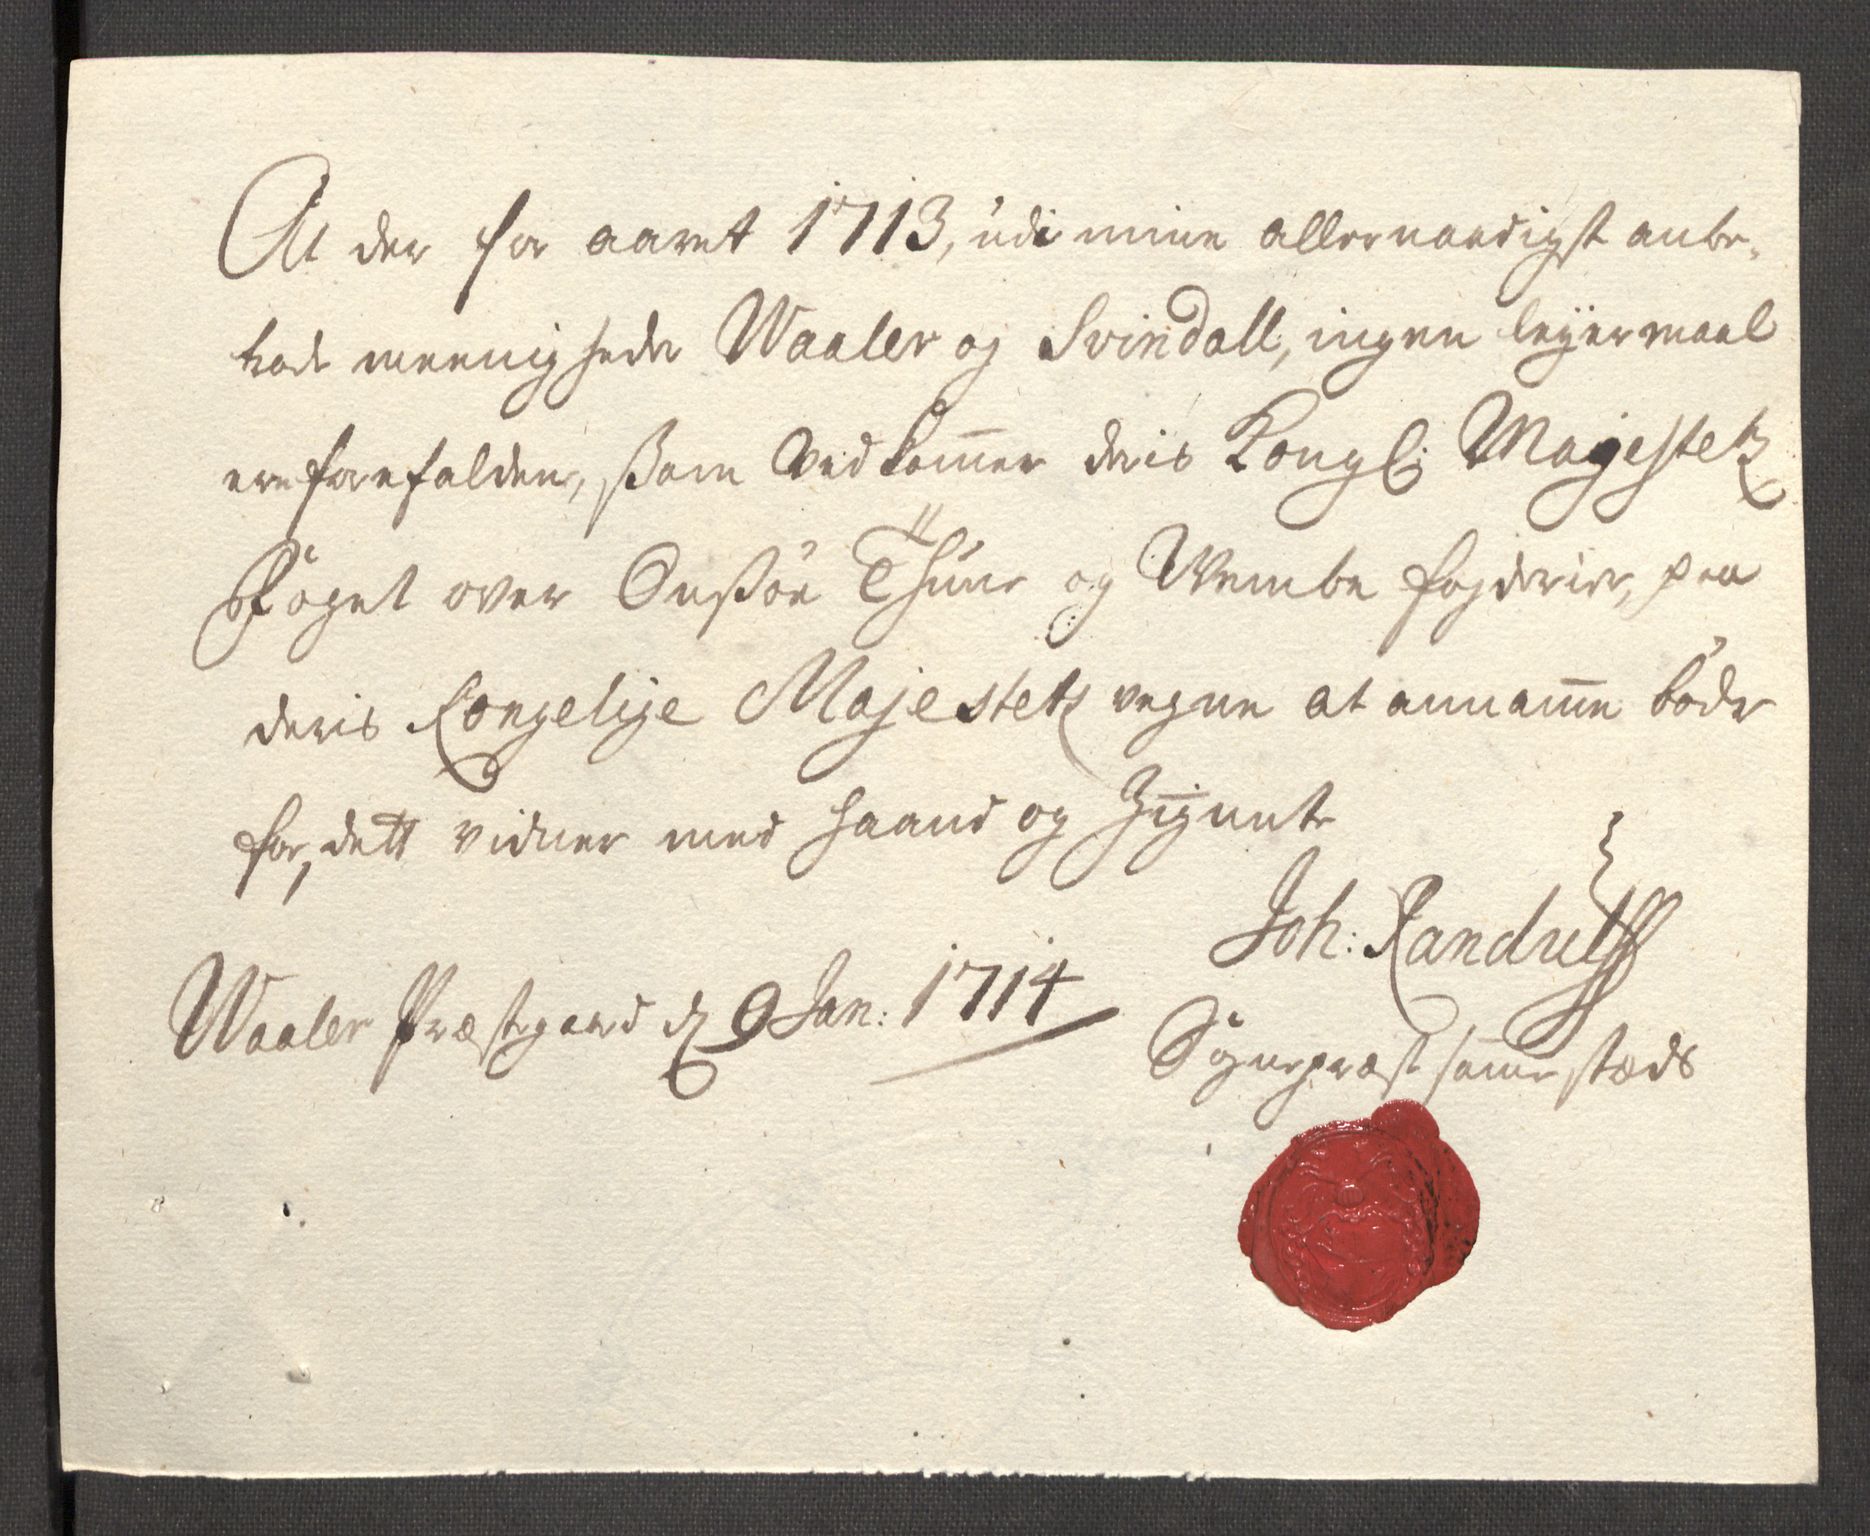 At der for aaret 1713, udi mine allernaadigst anbe-
trode meenigheder Waaler og Svindall, ingen leyermaal
ere forefalden, ßom vedkom̅er deris Kongl: Majestetz
Foget over Onsöe Thune og Wembe fogderier, paa
deris Kongelige Majestetz vegne at annam̅e böder
for, dett vidner med haand og Zignete
Joh: Randulff
Waaler Præstgaard dz 9 Jan: 1714
Sognepræst sam̅estæds